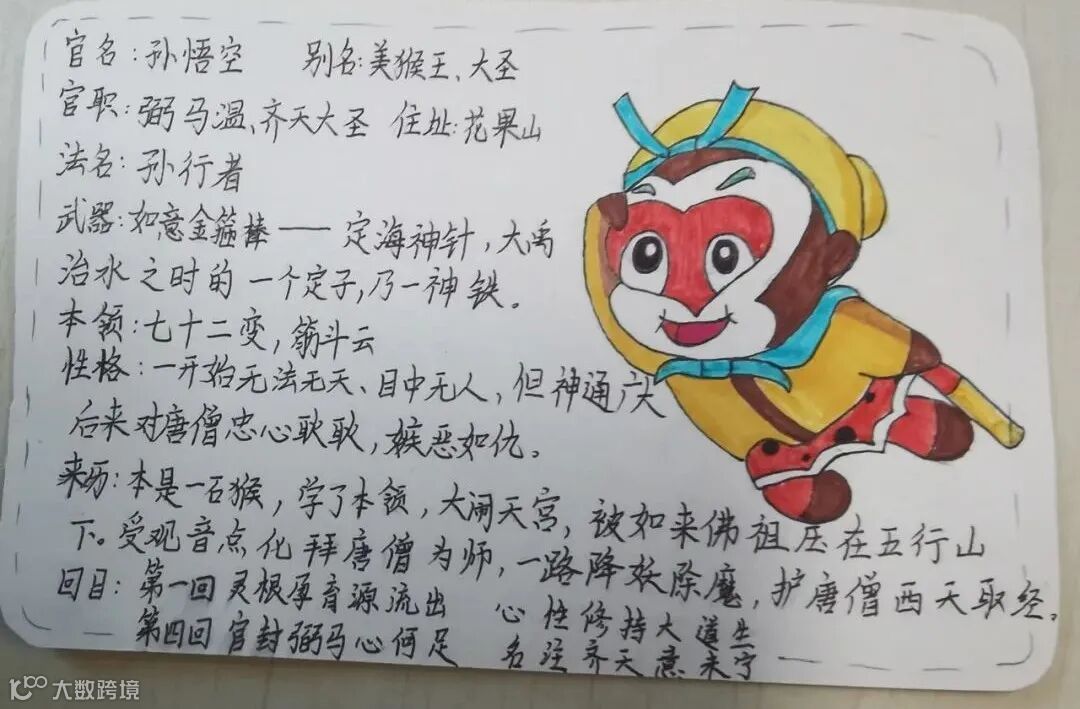 官名：孙悟空 别名：美猴王、大圣
官职：弼马温、齐天大圣 住址：花果山
法名：孙行者
武器：如意金箍棒——定海神针，大禹
治水之时的一个定子，乃一神铁。
本领：七十二变，筋斗云
性格：一开始无法无天、目中无人，但神通广大
后来对唐僧忠心耿耿，嫉恶如仇。
来历：本是一石猴，学了本领，大闹天宫，被如来佛祖压在五行山
下。受观音点化拜唐僧为师，一路降妖除魔，护唐僧西天取经。
回目：第一回灵根孕育源流出 心性修持大道生
第四回官封弼马心何足 名注齐天意未宁
大数跨境